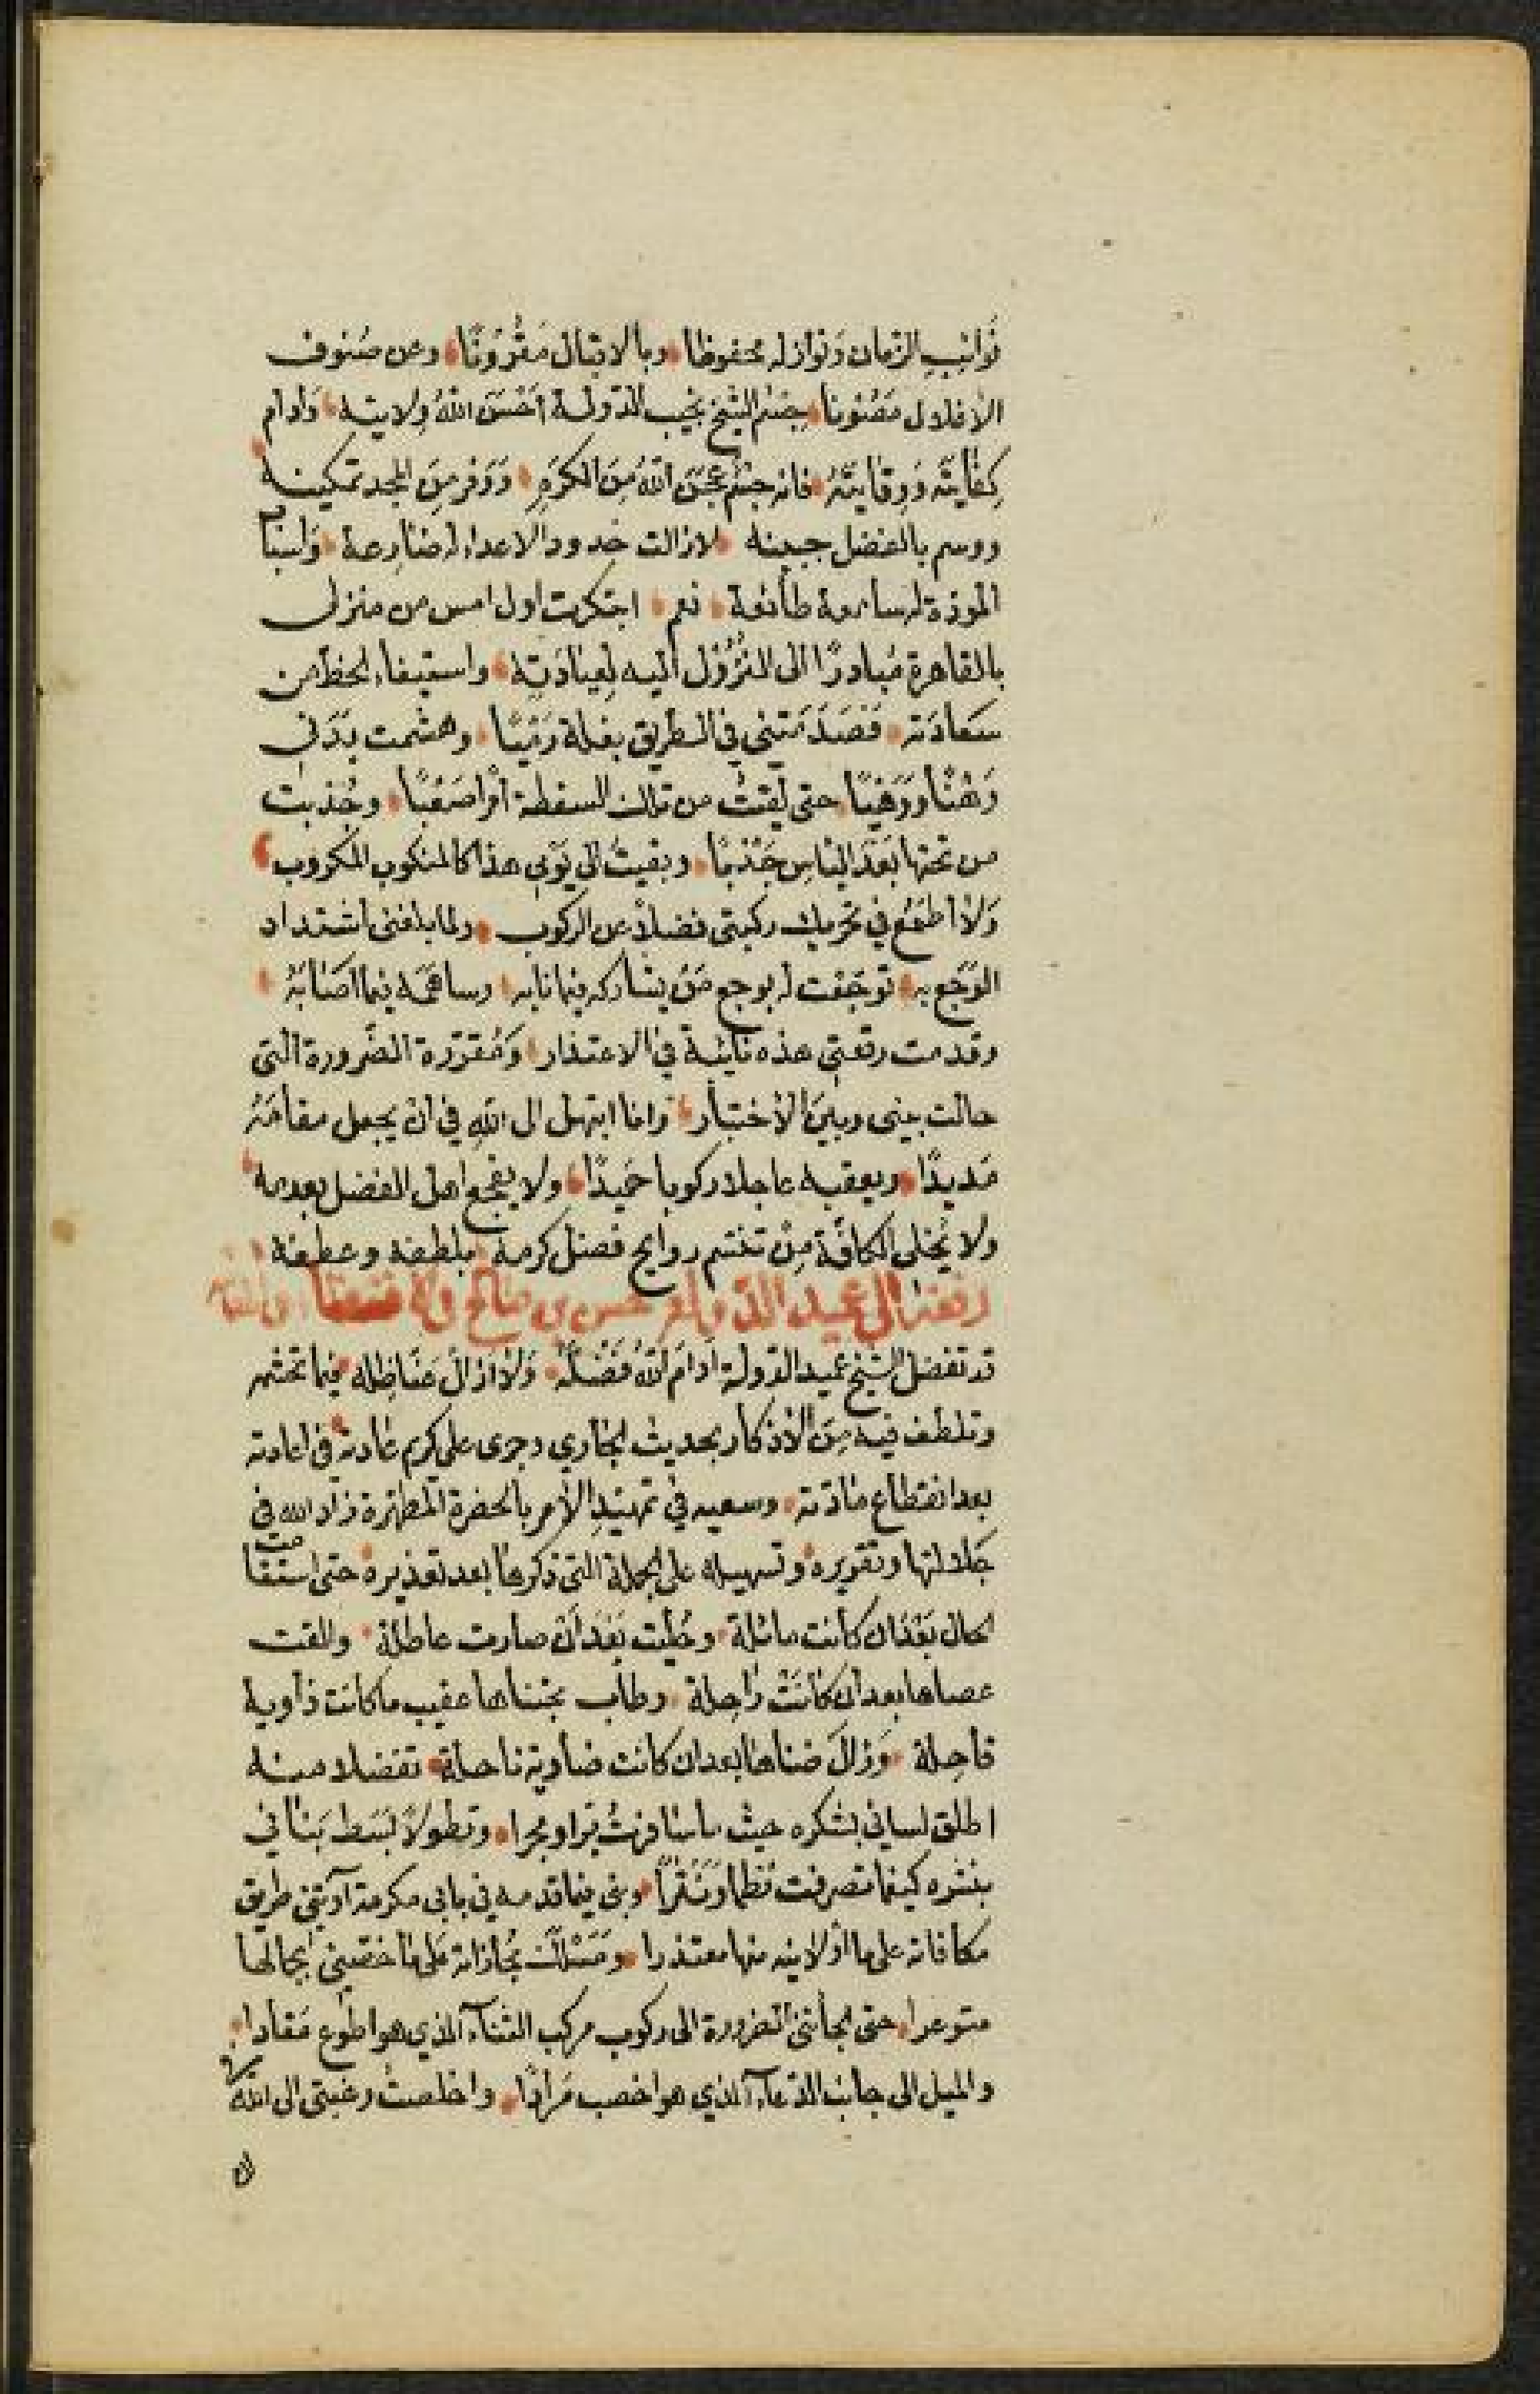 نَوائبِ الزمان وَنوازله محفوظا وبالاقبال مَقْرُونًا وعن صُنوف
الاقلال مَصُنونا جسم الشيخ نجيب الدولة أَحْسَنَ اللهُ وِلايته وَادام
كِفايتَه وَوِقايتَهُ فانه جسْمٌ عجَنَ اللهُ مِنَ الكَرَمِ وَوَفر مِنَ المجد تمكينه
ووسم بالفضل جبينه لا زالت خدود الاعداء له ضارِعة وَاسبَا
الموذة له سامعة طائعة نعم ابتكرت اول امس من منزلى
بالقاهرة مُبادرًا الى النُزُوْل اليه لِعيادَتِه واستيفاء الحظ من
سَعادَته فَصَدَمَتنى في الطريق بغلة وهشمت بدَنى
وَهْنًا وَوَهْيًا حتى لَقيتُ من تلك السقطة أمرًا صَعْبًا وجُذبت
من تحتها بَعْدَ الياسِ جَذبًا وبقيتُ الى يَوْمى هذا كالمنكوب المكروب
وَلا اطمَع في تحريك ركبتى فضلاً عن الركوب ولما بلغنى اشتداد
الوَجَع به توجَعت له توجع مَنْ يشاركه فيما نابه وساهمَه فيما اصَابَهُ
وقدمت رقعتى هذه نائبة في الاعتذار وَمُقرّرة الضَّرورة التى
حالت بينى وبيَن الاختيار وانا ابتهل الى اللهِ في ان يجعل مقامَهُ
مَديدًا ويعقبه عاجلا ركوبا حَميدًا ولا يفجع اهل الفضل بعدمه
ولا يُخلى الكافّة مِنْ تنسّم روايح فضل كرمه بلطفه وعطفه
رقعة الى عميد الدولة حسن بن صالح
قد تفضل الشيخ عميد الدولة ادَامَ اللهُ فَضْلَهُ وَلا ازالَ عَنّا ظله فيما تجشمه
وتلطف فيه مِنَ الاذكار بحديث الجَاري وجرى على كريم عَادته في اعادته
بعد انقطاع مَادّته وسعيه في تمهيْدِ الامر بالحضرة المطهّرة زاد الله فى
جَلالتها وتقويره وتسهيله على الجملة التى ذكرهَا بعد تعذيره حتى استقامت
الحال بَعْدَ ان كانت مائلة وحُلّيت بَعْدَ ان صارت عاطلة والقت
عصاها بعد ان كانَتْ رَاحلة وطاب مجتناها عقيب ما كانت ذاوية
قاحِلة وَزالَ ضناهَا بعد ان كانت ضاوية ناحلة تفضلا منه
اطلق لسانى بشكره حيث ما سافرتُ بَرا وبحرا وتطولاً بَسَط بَنانى
بنشره كيفما تصرفت نظما وَنَثْرًا وبقى فيما قدمه فى بابى مكرمة طريق
مكافاته على ما أولانيه منها معتذرا وَمَسْلك مُجازاته على مَا خصّنى بجمالها
متوعرا حتى الجأتنى الضرورة الى ركوب مركب الثناء الذي هو اطوع مَقادا
والميل الى جانب الدعاء الذي هو اخصب مَرادًا واخلصتُ رغبتى الى الله